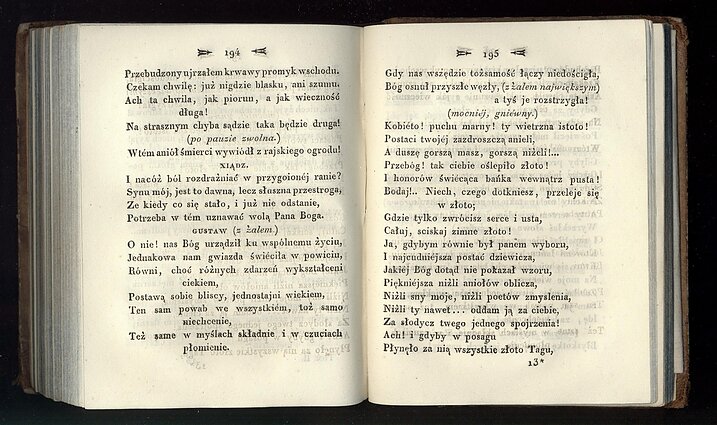 194
Przebudzony ujrzałem krwawy promyk wschodu.
Czekam chwilę: już nigdzie blasku, ani szumu.
Ach ta chwila, jak piorun, a jak wieczność
długa!
Na strasznym chyba sądzie taka będzie druga!
(po pauzie zwolna.)
Wtém aniół śmierci wywiódł z rajskiego ogrodu!
XIĄDZ.
I nacóż ból rozdrażniać w przygoionéj ranie?
Synu mój, jest to dawna, lecz słuszna przestroga,
Ze kiedy co się stało, i już nie odstanie,
Potrzeba w tém uznawać wolą Pana Boga.
GUSTAW (z żalem.)
O nie! nas Bóg urządził ku wspólnemu życiu,
Jednakowa nam gwiazda świéciła w powiciu,
Równi, choć różnych zdarzeń wykształceni
ciekiem,
Postawą sobie bliscy, jednostajni wiekiem,
Ten sam powab we wszystkiém, toż samo
niechcenie,
Też same w myślach składnie i w czuciach
płomienie.
195
Gdy nas wszędzie tożsamość łączy niedościgła,
Bóg osnuł przyszłe węzły, (z żalem największym)
a tyś je rozstrzygła!
(mocniéj, gniéwny.)
Kobiéto! puchu marny! ty wietrzna istoto!
Postaci twojej zazdroszczą anieli,
A duszę gorszą masz, gorszą niżeli!...
Przebóg! tak ciebie oślepiło złoto!
I honorów świécąca bańka wewnątrz pusta!
Bodaj!.. Niech, czego dotkniesz, przeleje się
w złoto;
Gdzie tylko zwrócisz serce i usta,
Całuj, sciskaj zimne złoto!
Ja, gdybym równie był panem wyboru,
I najcudniejsza postać dziewicza,
Jakiéj Bóg dotąd nie pokazał wzoru,
Piękniejsza niżli aniołów oblicza,
Niżli sny moje, niżli poetów zmyslenia,
Niżli ty nawet... oddam ją za ciebie,
Za słodycz twego jednego spojrzenia!
Ach! i gdyby w posagu
Płynęło za nią wszystkie złoto Tagu,
13*